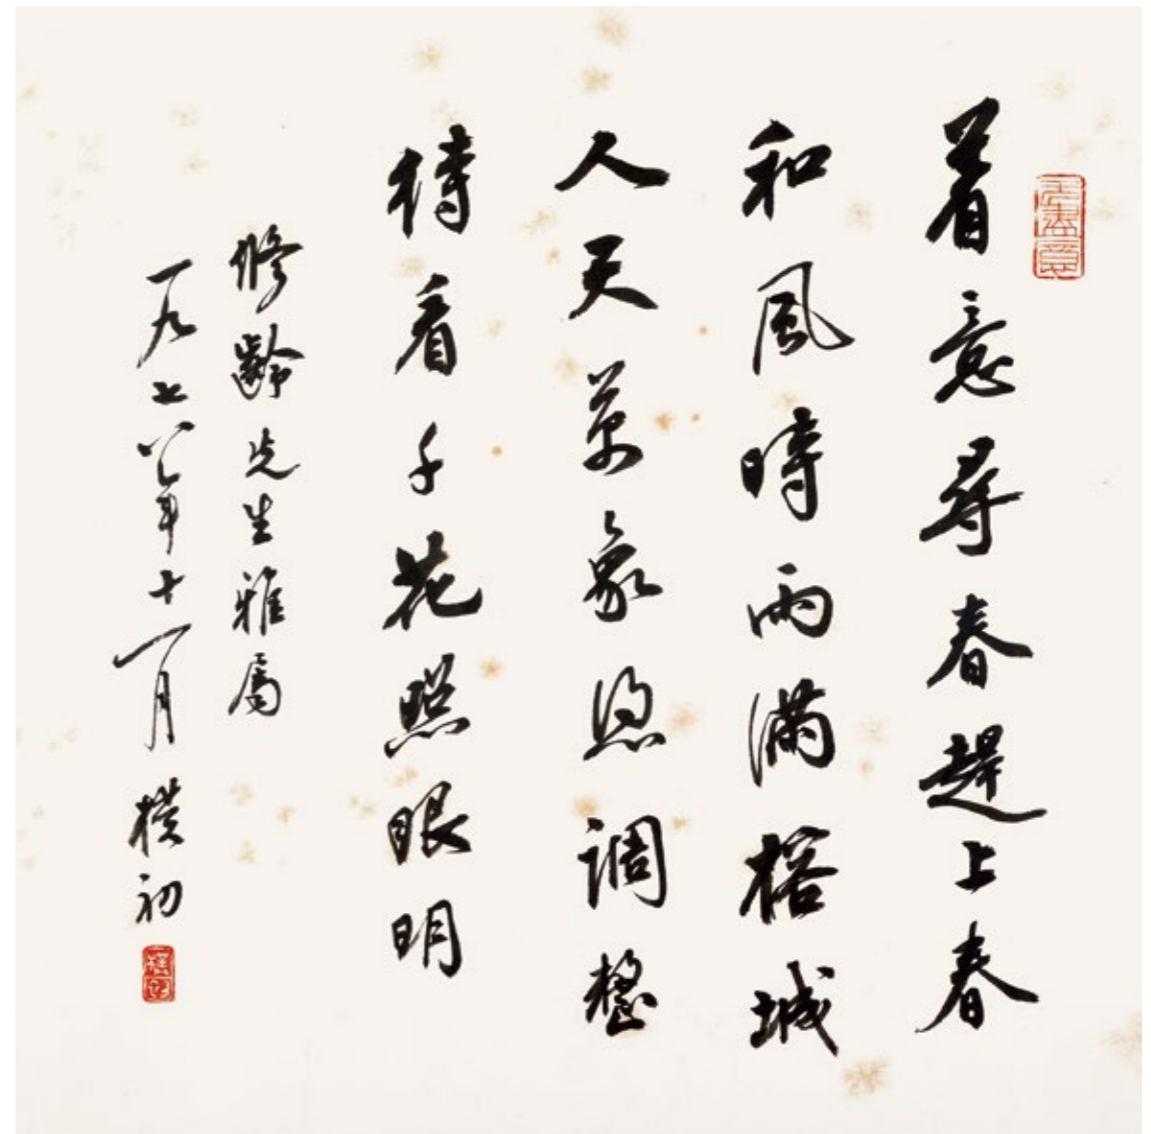 无盡意
着意尋春趕上春
和風時雨滿榕城
人天萬象憑調整
待看千花照眼明
修齡先生雅屬
一九七八年十一月 樸初